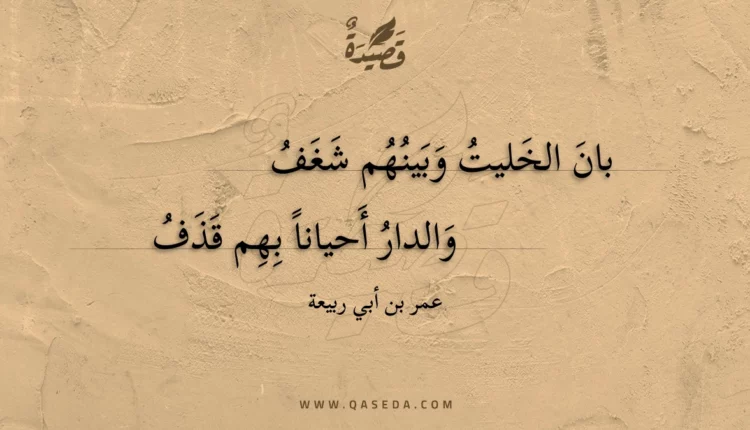 قَصِيدَةٌ
بانَ الخَليتُ وَبَينُهُم شَغَفُ
وَالدارُ أَحياناً بِهِم قَذَفُ
عمر بن أبي ربيعة
WWW.QASEDA.COM